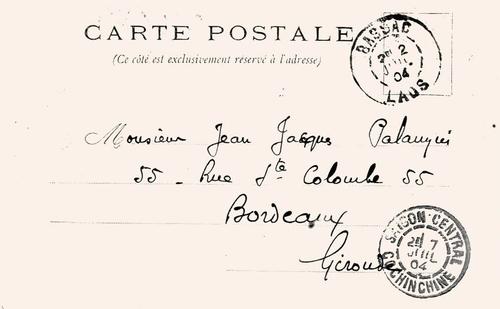 CARTE POSTALE
(Ce côté est exclusivement réservé à l'adresse)
BASSAC
2
JUIL
04
LAOS
Monsieur Jean Jacques Palanqui
55 - Rue Ste Colombe 55
Bordeaux
Gironde
SAIGON CENTRAL
7
JUIL
04
COCHINCHINE